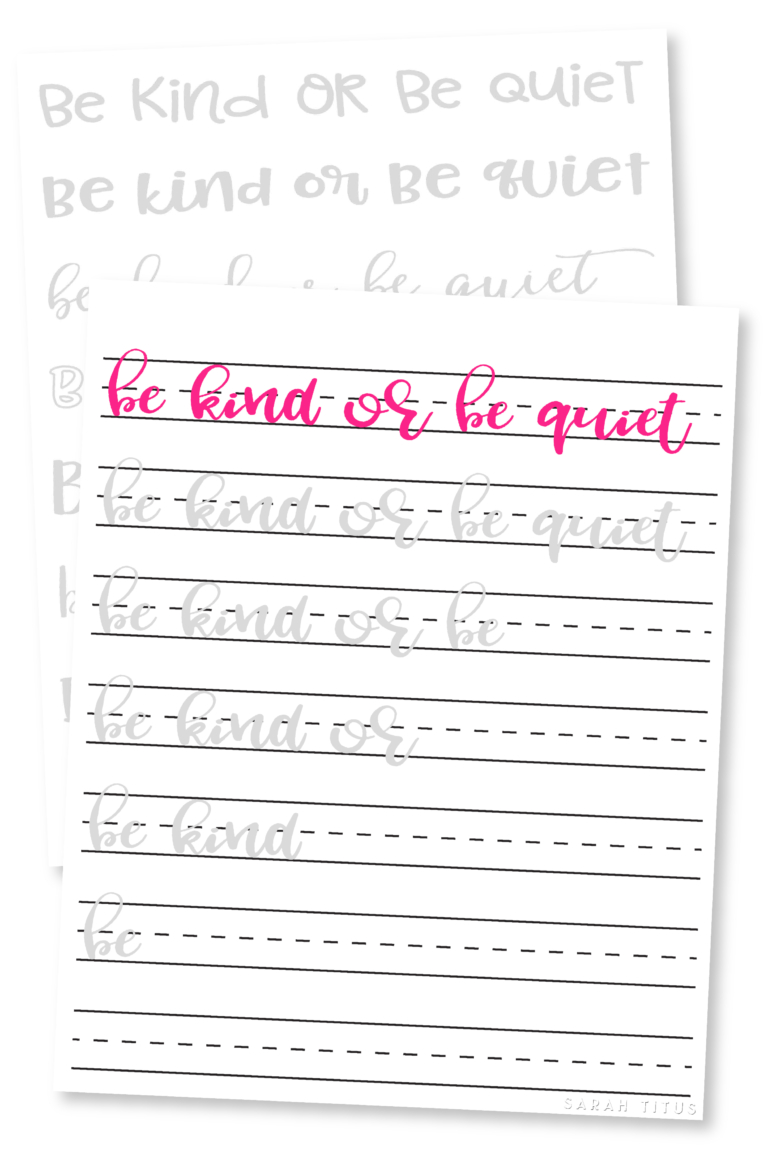 Be Kind OR Be Quiet
Be kind or Be quiet
be be quiet
B
B
b
be kind or be quiet
be kind or be quiet
be kind or be
be kind or
be kind
be
SARAH TITUS